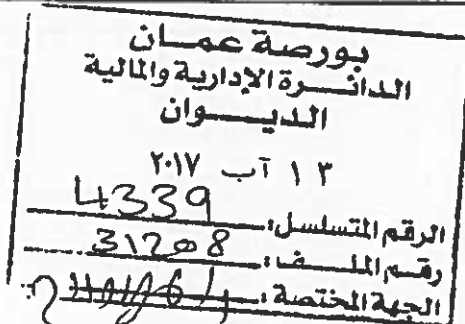 بورصة عمـان
الدائـــرة الإدارية والمالية
الديـــوان
١٣ آب ٢٠١٧
الرقم المتسلسل: 4339
رقـم الملـــف: 31208
الجهة المختصة: